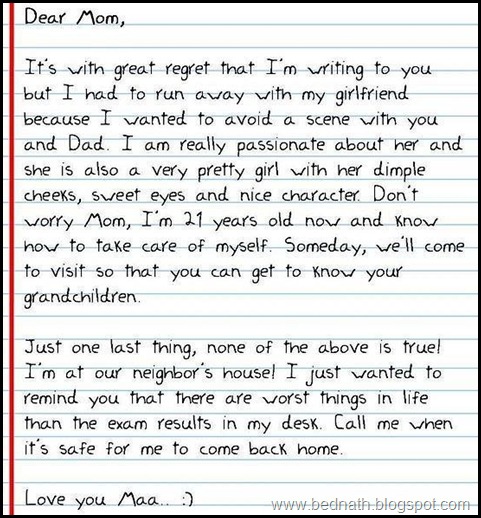 Dear Mom,
It's with great regret that I'm writing to you
but I had to run away with my girlfriend
because I wanted to avoid a scene with you
and Dad. I am really passionate about her and
she is also a very pretty girl with her dimple
cheeks, sweet eyes and nice character. Don't
worry Mom, I'm 21 years old now and know
how to take care of myself. Someday, we'll come
to visit so that you can get to know your
grandchildren.
Just one last thing, none of the above is true!
I'm at our neighbor's house! I just wanted to
remind you that there are worst things in life
than the exam results in my desk. Call me when
it's safe for me to come back home.
Love you Maa.. :)
www.bednath.blogspot.com